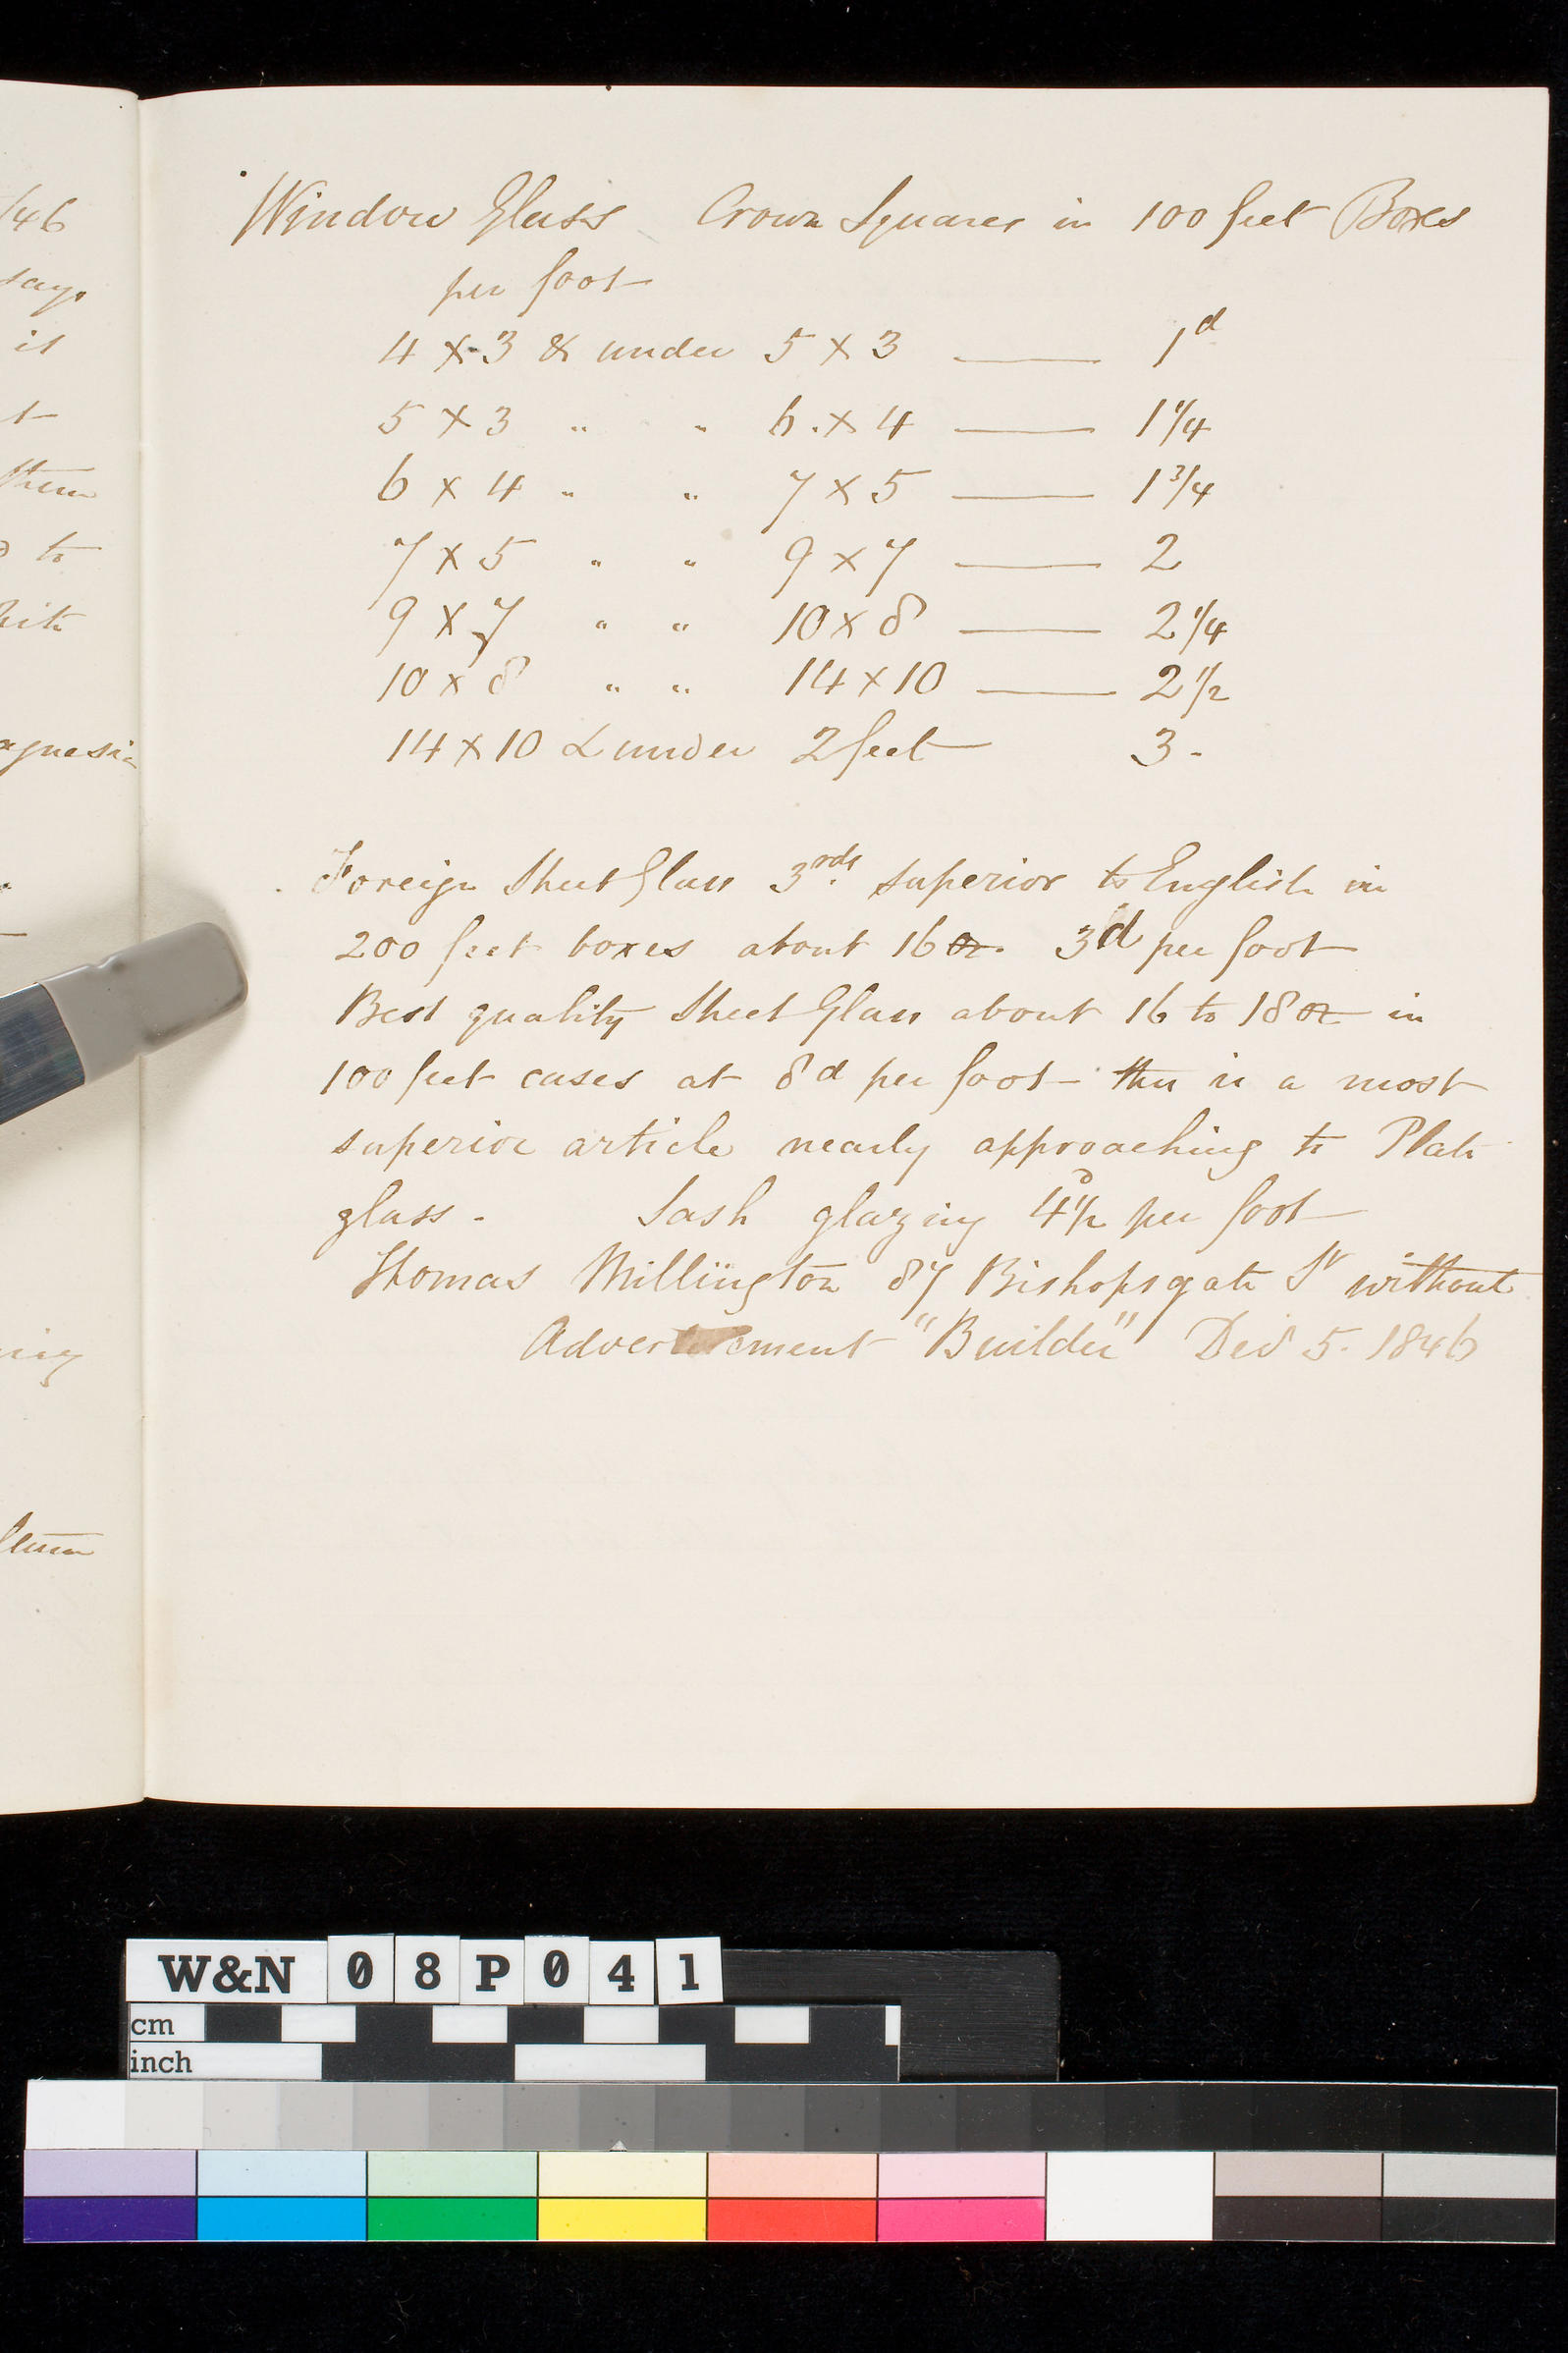 /46
says
is
t
them
d to
agnesia
Window Glass Crown Squares in 100 feet Boxes
per foot
4 x 3 & under 5 x 3 — 1d
5 x 3 " " 6 . x 4 — 1 1/4
6 x 4 " " 7 x 5 — 1 3/4
7 x 5 " " 9 x 7 — 2
9 x 7 " " 10 x 8 — 2 1/4
10 x 8 " " 14 x 10 — 2 1/2
14 x 10 & under 2 feet 3 -
Foreign Sheet Glass 3rds. superior to English in
200 feet boxes about 16 oz. 3d per foot
Best quality Sheet Glass about 16 to 18 oz in
100 feet cases at 8d per foot - this is a most
superior article nearly approaching to Plate
glass - Sash glazing 4 1/2 d per foot
Thomas Millington 87 Bishopsgate St without
Advertisement "Builder" Decr 5. 1846
W&N 08P041
cm
inch